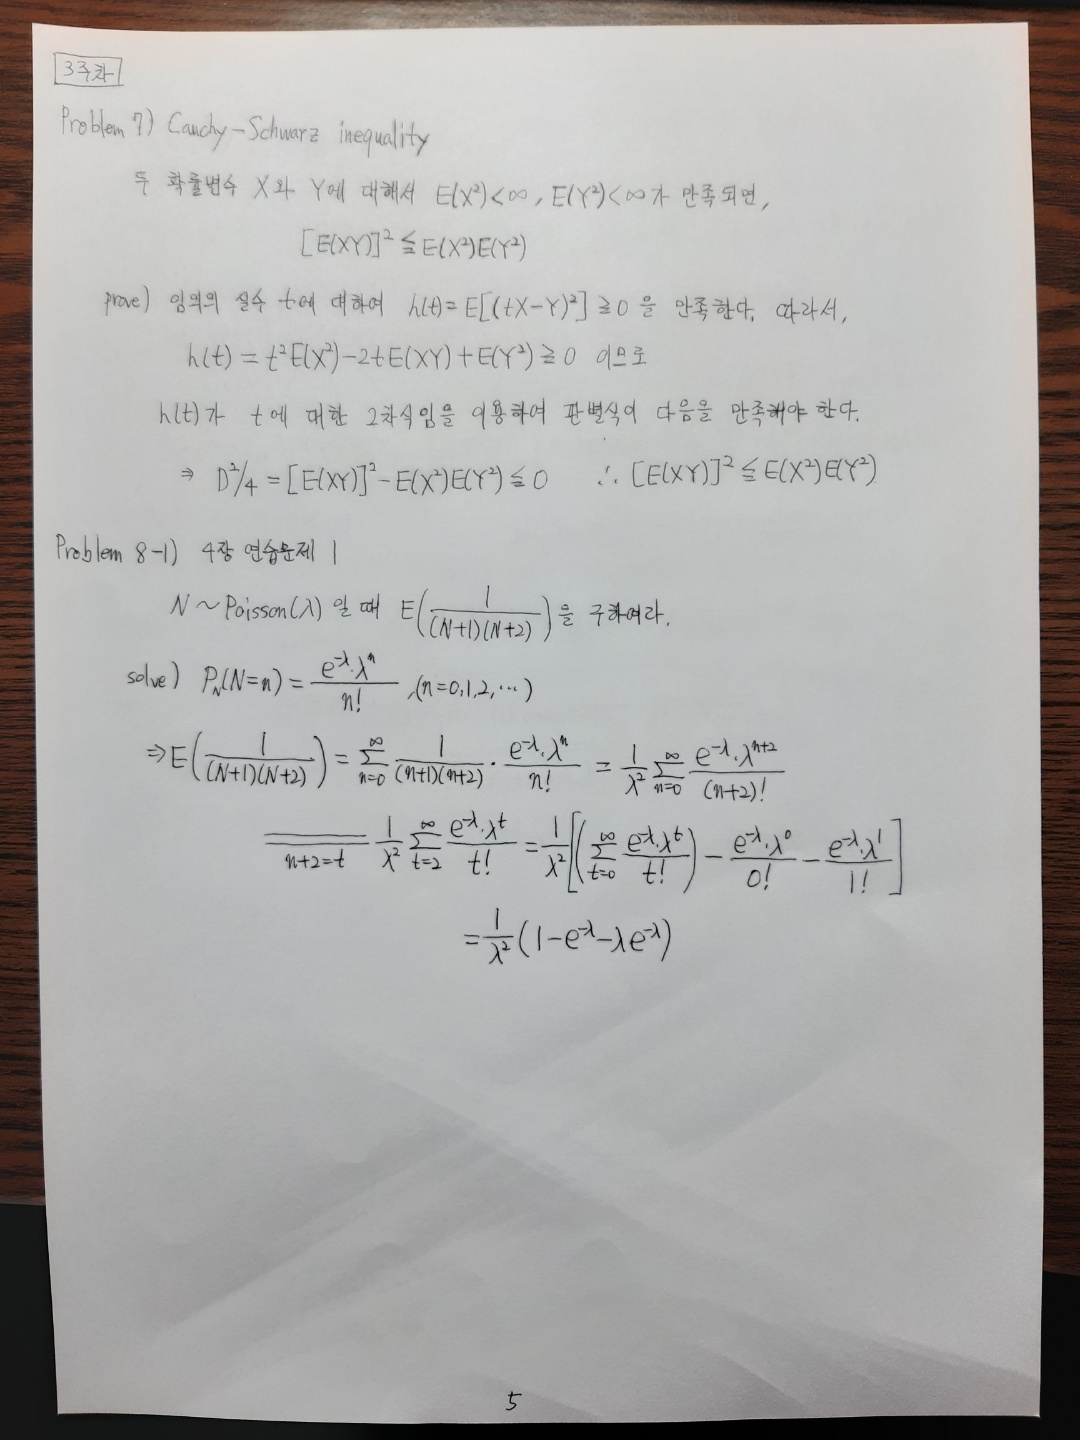 3주차
Problem 7) Cauchy-Schwarz inequality
두 확률변수 X와 Y에 대해서 E(X²)<∞, E(Y²)<∞가 만족되면,
[E(XY)]² ≦ E(X²)E(Y²)
prove) 임의의 실수 t에 대하여 h(t)=E[(tX-Y)²]≧0 을 만족한다. 따라서,
h(t) = t²E(X²)-2tE(XY)+E(Y²)≧0 이므로
h(t)가 t에 대한 2차식임을 이용하여 판별식이 다음을 만족해야 한다.
⇒ D²/4 = [E(XY)]²-E(X²)E(Y²)≦0 ∴ [E(XY)]² ≦ E(X²)E(Y²)
Problem 8-1) 4장 연습문제 1
N ~ Poisson(λ) 일 때 E(1/((N+1)(N+2)))을 구하여라.
solve) P_N(N=n) = (e^-λ·λ^n)/n! ,(n=0,1,2,⋯)
⇒ E(1/((N+1)(N+2))) = Σ_{n=0}^∞ 1/((n+1)(n+2)) · (e^-λ·λ^n)/n! = 1/λ² Σ_{n=0}^∞ (e^-λ·λ^{n+2})/(n+2)!
=(n+2=t) 1/λ² Σ_{t=2}^∞ (e^-λ·λ^t)/t! = 1/λ² [(Σ_{t=0}^∞ (e^-λ·λ^t)/t!) - (e^-λ·λ^0)/0! - (e^-λ·λ^1)/1!]
= 1/λ² (1-e^-λ-λe^-λ)
5